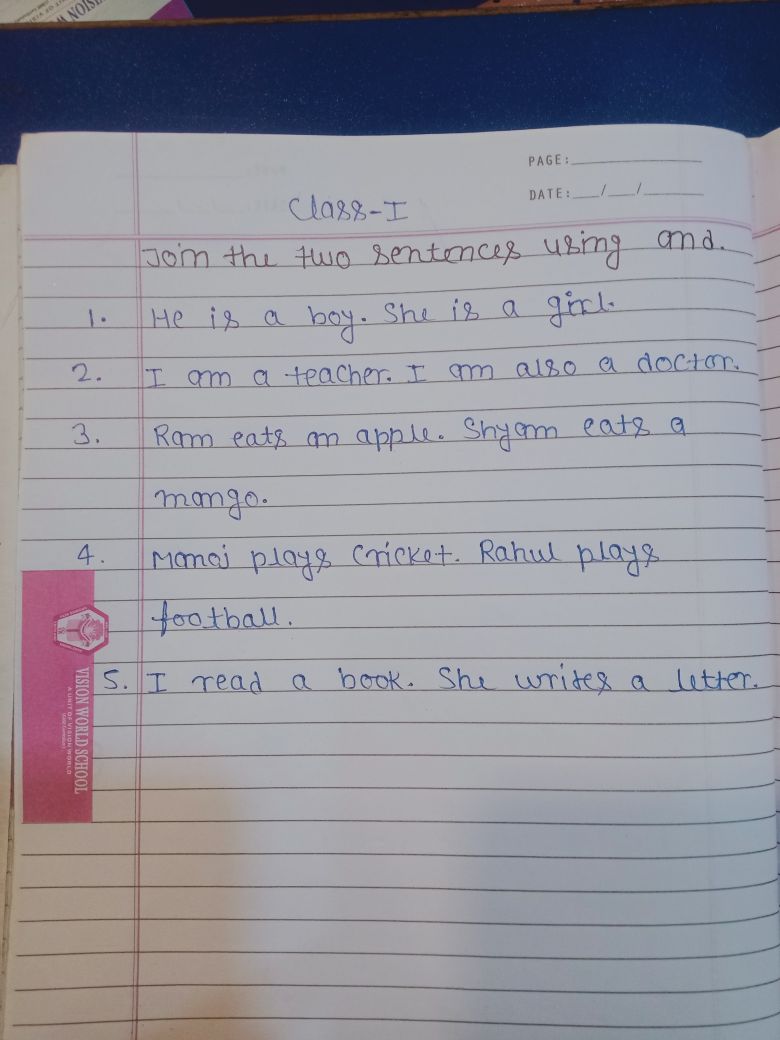 PAGE:
DATE: / /
Class-I
Join the two sentences using and.
1. He is a boy. She is a girl.
2. I am a teacher. I am also a doctor.
3. Ram eats an apple. Shyam eats a
mango.
4. Manoj plays cricket. Rahul plays
football.
5. I read a book. She writes a letter.
VISION WORLD SCHOOL
A UNIT OF VISION WORLD